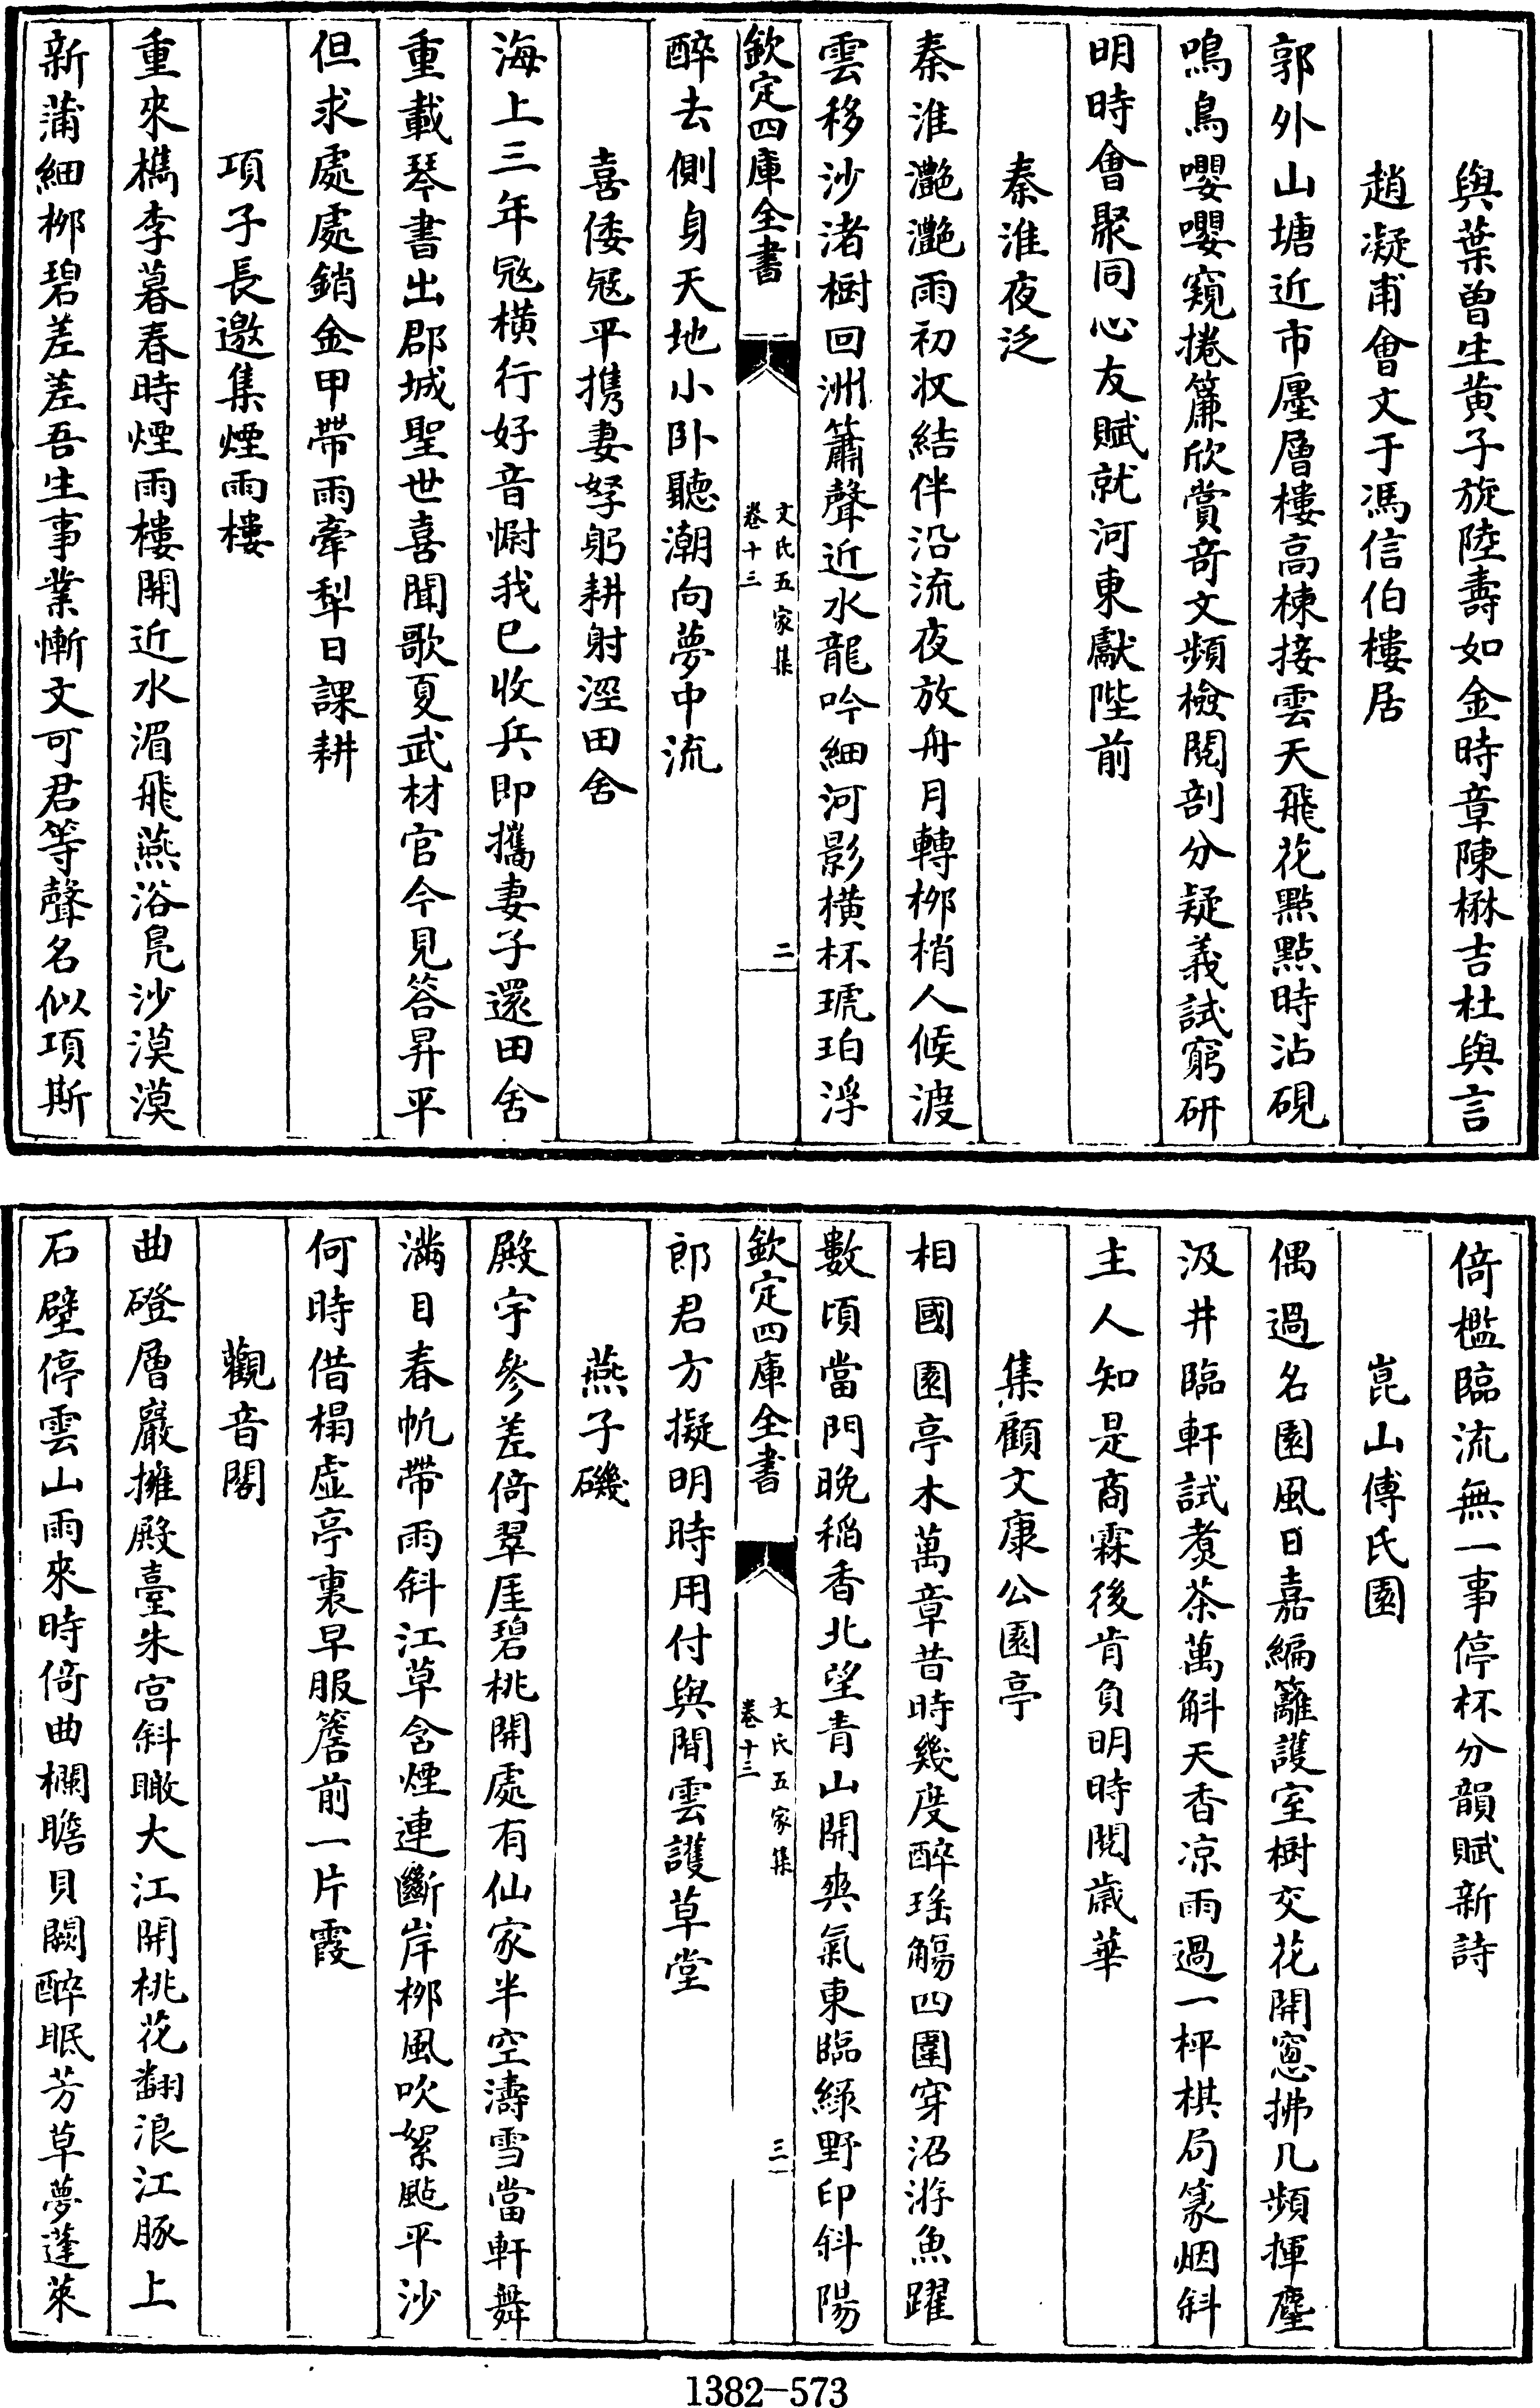 與葉曽生黄子旋陸壽如金時章陳楙吉杜與言
趙凝甫會文于馮信伯樓居
郭外山塘近市廛層樓高棟接雲天飛花點點時沾硯
鳴鳥嚶嚶窺捲簾欣賞竒文頻檢閲剖分疑義試窮研
明時會聚同心友賦就河東獻陛前
秦淮夜泛
秦淮灔灔雨初収結伴沿流夜放舟月轉栁梢人候渡
雲移沙渚樹回洲簫聲近水龍吟細河影横杯琥珀浮
欽定四庫全書
文氏五家集
卷十三
二
醉去側身天地小卧聽潮向夢中流
喜倭冦平携妻孥躬耕射涇田舍
海上三年冦横行好音慰我已收兵即攜妻子還田舍
重載琴書出郡城聖世喜聞歌夏武材官今見答昇平
但求處處銷金甲帶雨牽犁日課耕
項子長邀集煙雨樓
重來檇李暮春時煙雨樓開近水湄飛燕浴鳬沙漠漠
新蒲細栁碧差差吾生事業慚文可君等聲名似項斯
倚檻臨流無一事停杯分韻賦新詩
崑山傅氏園
偶過名園風日嘉編籬護室樹交花開窻拂几頻揮麈
汲井臨軒試煑茶萬斛天香凉雨過一枰棋局篆烟斜
主人知是商霖後肯負明時閲歳華
集顧文康公園亭
相國園亭木萬章昔時幾度醉瑤觴四圍穿沼游魚躍
數頃當門晚稻香北望青山開爽氣東臨緑野印斜陽
欽定四庫全書
文氏五家集
卷十三
三
郎君方擬明時用付與閒雲護草堂
燕子磯
殿宇參差倚翠厓碧桃開處有仙家半空濤雪當軒舞
滿目春帆帶雨斜江草含煙連斷岸栁風吹絮颭平沙
何時借榻虛亭裏早服簷前一片霞
觀音閣
曲磴層巖擁殿臺朱宫斜瞰大江開桃花翻浪江豚上
石壁停雲山雨來時倚曲欄瞻貝闕醉眠芳草夢蓬萊
1382-573